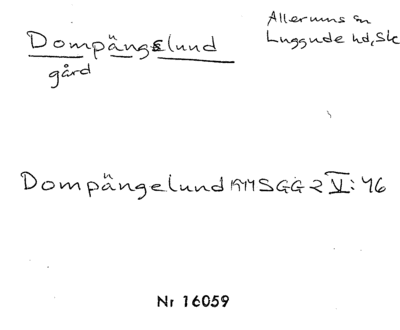 Dompängslund
gård
Allerums sn
Luggude hd, Sk
Dompängelund 1944 SGG 2 V: 46
Nr 16059